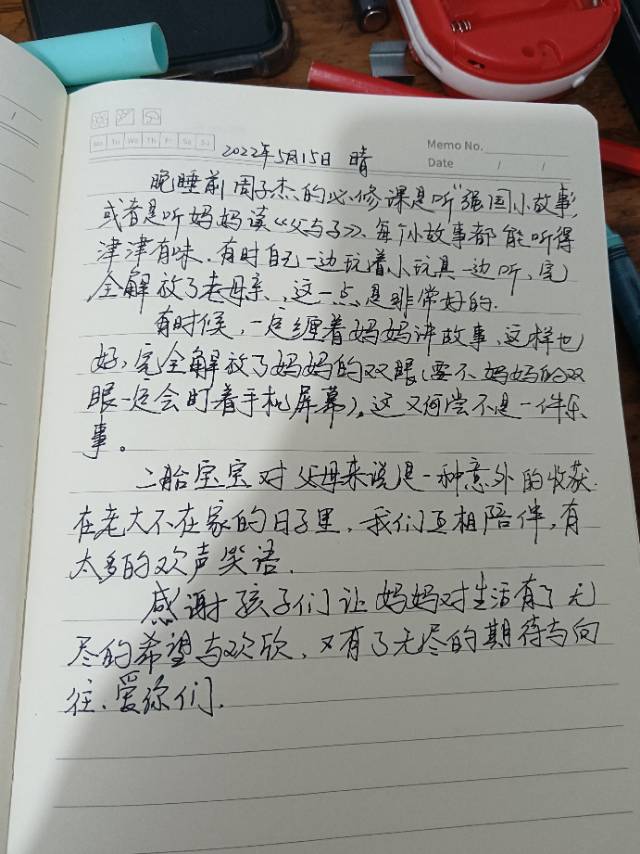 Mo Tu We Th Fr Sa Su
Memo No.
Date / /
2022年5月15日 晴
晚睡前周子杰的必修课是听“强国小故事”,
或者是听妈妈读《父与子》、每个小故事都能听得
津津有味、有时自己一边玩着小玩具一边听、完
全解放了老母亲、这一点是非常好的.
有时候,一定缠着妈妈讲故事、这样也
好,完全解放了妈妈的双眼(要不妈妈的双
眼一定会盯着手机屏幕),这又何尝不是一件乐
事。
二胎宝宝对父母来说是一种意外的收获.
在老大不在家的日子里、我们互相陪伴,有
太多的欢声笑语.
感谢孩子们让妈妈对生活有了无
尽的希望与欢欣、又有了无尽的期待与向
往、爱你们.